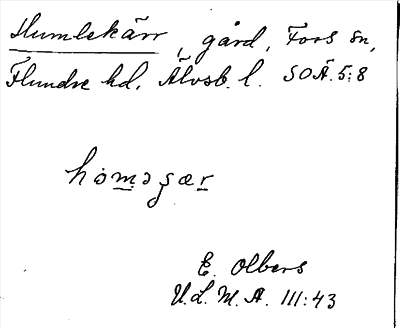 Humlekärr, gård, Fors sn,
Flundre hd. Älvsb. l. SOÄ.5:8
hȯməɟær
E. Olbers
U.L.M.A. 111:43